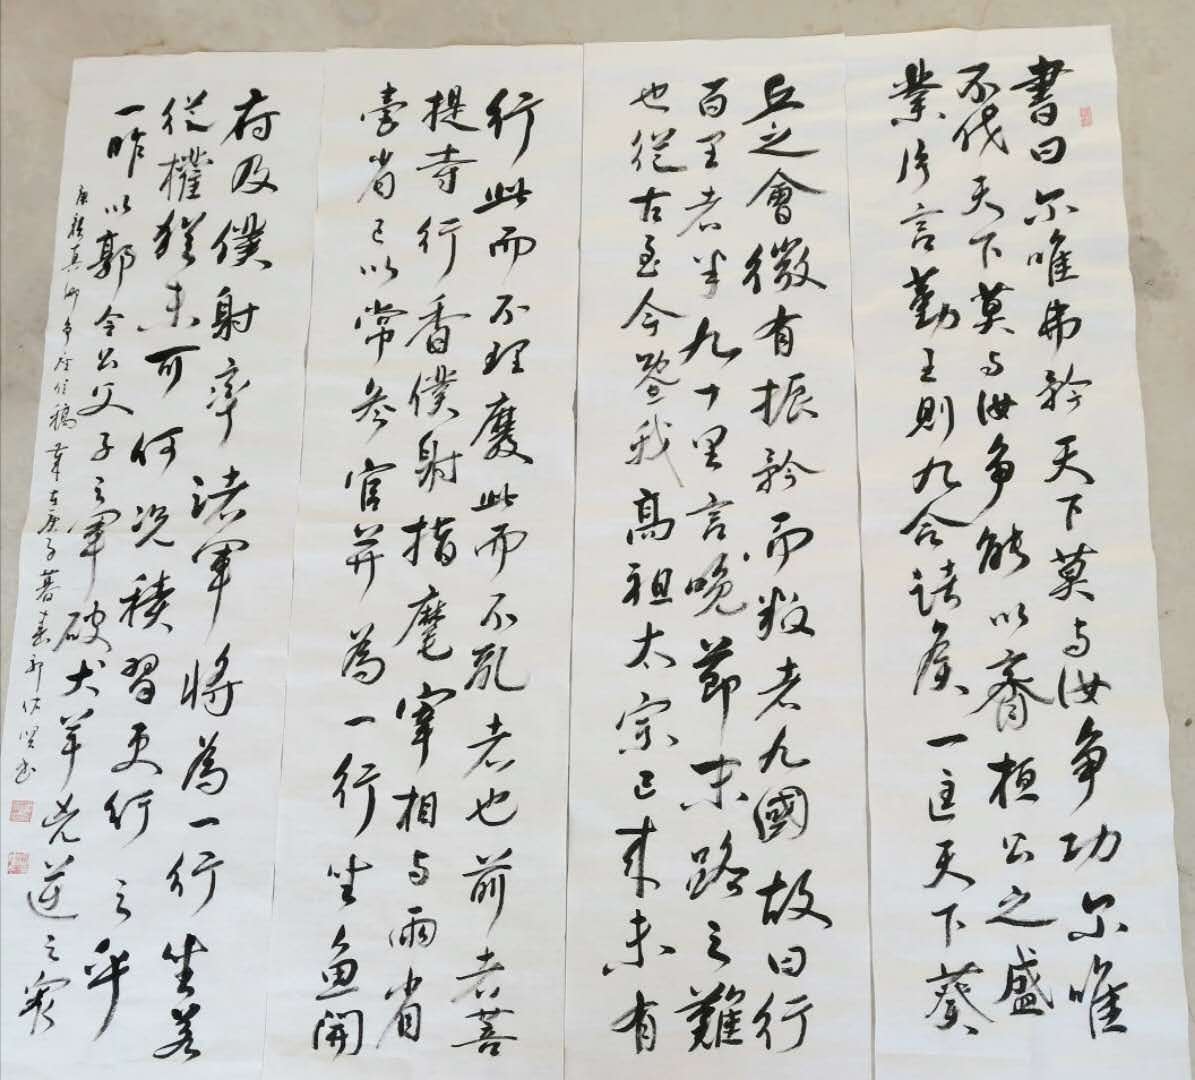 書曰尔唯弗矜天下莫与汝争功尔唯
不伐天下莫与汝争能以齊桓公之盛
業片言勤王則九合諸侯一匡天下葵
丘之會微有振矜而叛者九國故曰行
百里者半九十里言晚節末路之難
也從古至今暨我高祖太宗已来未有
行此而不理廢此而不乱者也前者菩
提寺行香僕射指麾宰相与兩省
臺省已以常参官并為一行坐魚開
府及僕射率諸軍將為一行坐若
從權猶未可何況積習更行之乎
一昨以郭令公父子之軍破犬羊兇逆之衆
唐顔真卿争座位稿 庚子暮春